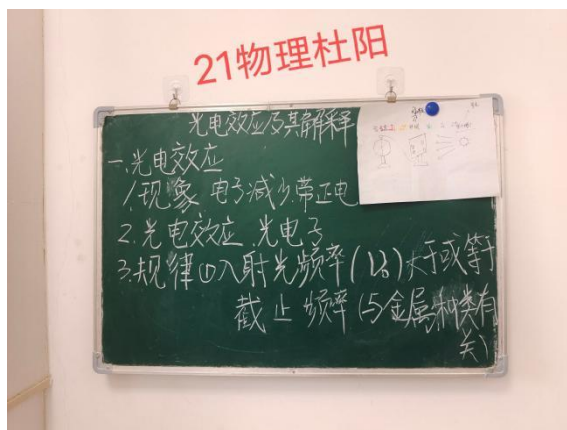 21物理杜阳
光电效应及其解释
一.光电效应
1.现象 电子减少.带正电
2.光电效应.光电子
3.规律①入射光频率(ν₀)大于或等于
截止频率(与金属种类有
关)